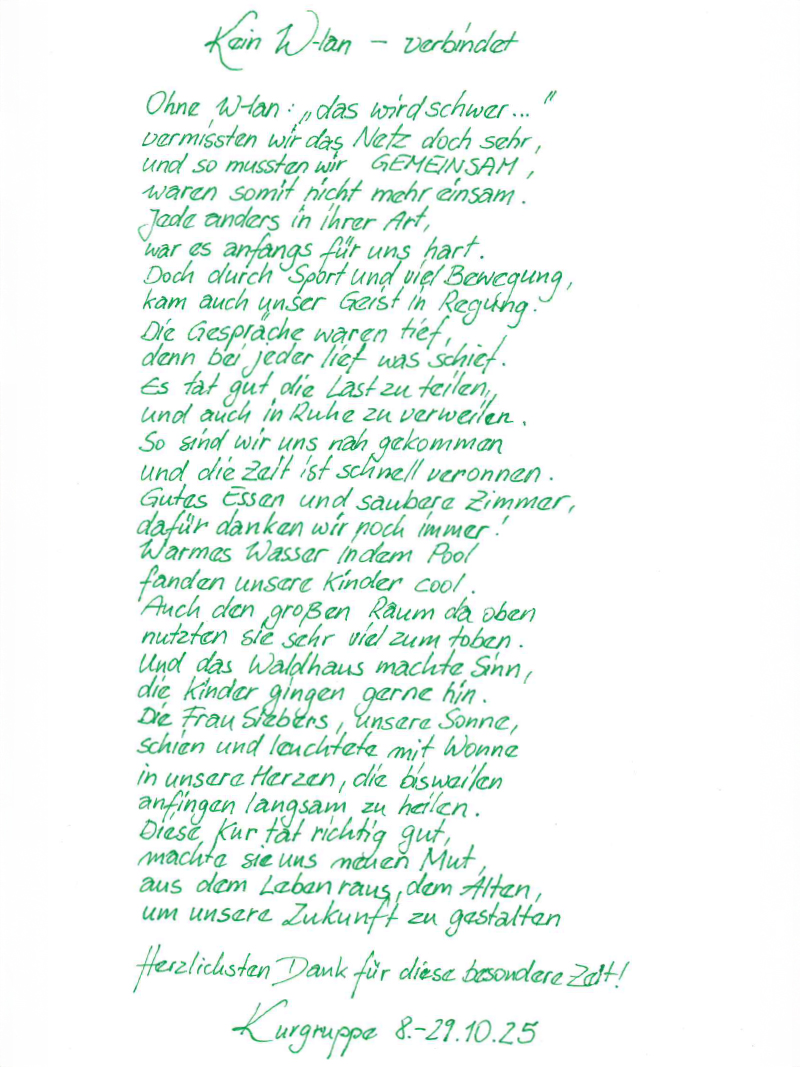 Kein W-lan – verbindet
Ohne W-lan: „das wird schwer..."
vermissten wir das Netz doch sehr,
und so mussten wir GEMEINSAM,
waren somit nicht mehr einsam.
Jede anders in ihrer Art,
war es anfangs für uns hart.
Doch durch Sport und viel Bewegung,
kam auch unser Geist in Regung.
Die Gespräche waren tief,
denn bei jeder lief was schief.
Es tat gut die Last zu teilen,
und auch in Ruhe zu verweilen.
So sind wir uns nah gekommen
und die Zeit ist schnell veronnen.
Gutes Essen und saubere Zimmer,
dafür danken wir noch immer!
Warmes Wasser in dem Pool
fanden unsere Kinder cool.
Auch den großen Raum da oben
nutzten sie sehr viel zum toben.
Und das Waldhaus machte Sinn,
die Kinder gingen gerne hin.
Die Frau Siebers, unsere Sonne,
schien und leuchtete mit Wonne
in unsere Herzen, die bisweilen
anfingen langsam zu heilen.
Diese Kur tat richtig gut,
machte sie uns neuen Mut,
aus dem Leben raus, dem Alten,
um unsere Zukunft zu gestalten
Herzlichsten Dank für diese besondere Zeit!
Kurgruppe 8.-29.10.25